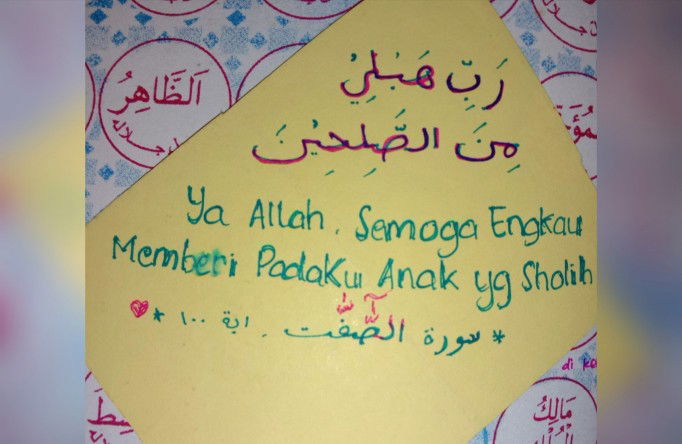 رَبِّ هَبْلِيْ
مِنَ الصَّلِحِيْنَ
Ya Allah. Semoga Engkau
Memberi Padaku Anak yg Sholih
* سورة الصّٰٓفّٰت . اية ١٠٠ *
اَلظَّاهِرُ
جل جلاله
مَالِكُ
di